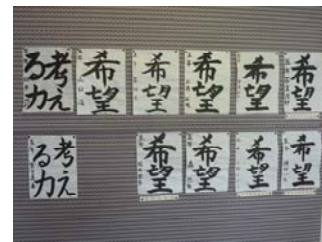 考え
る力
希望
希望
希望
希望
希望
考え
る力
希望
希望
希望
希望